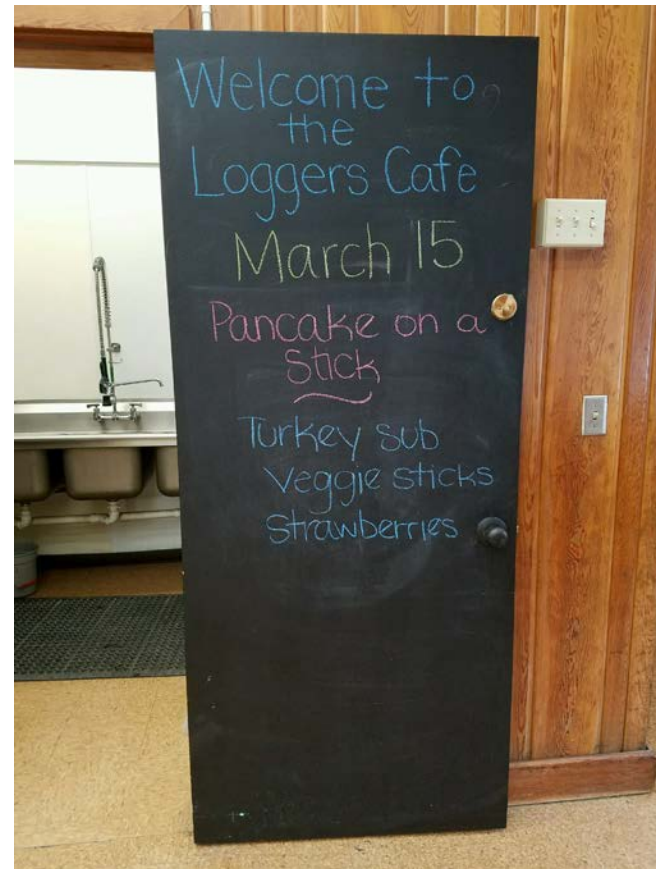 Welcome to
the
Loggers Cafe
March 15
Pancake on a
Stick
Turkey sub
Veggie sticks
Strawberries